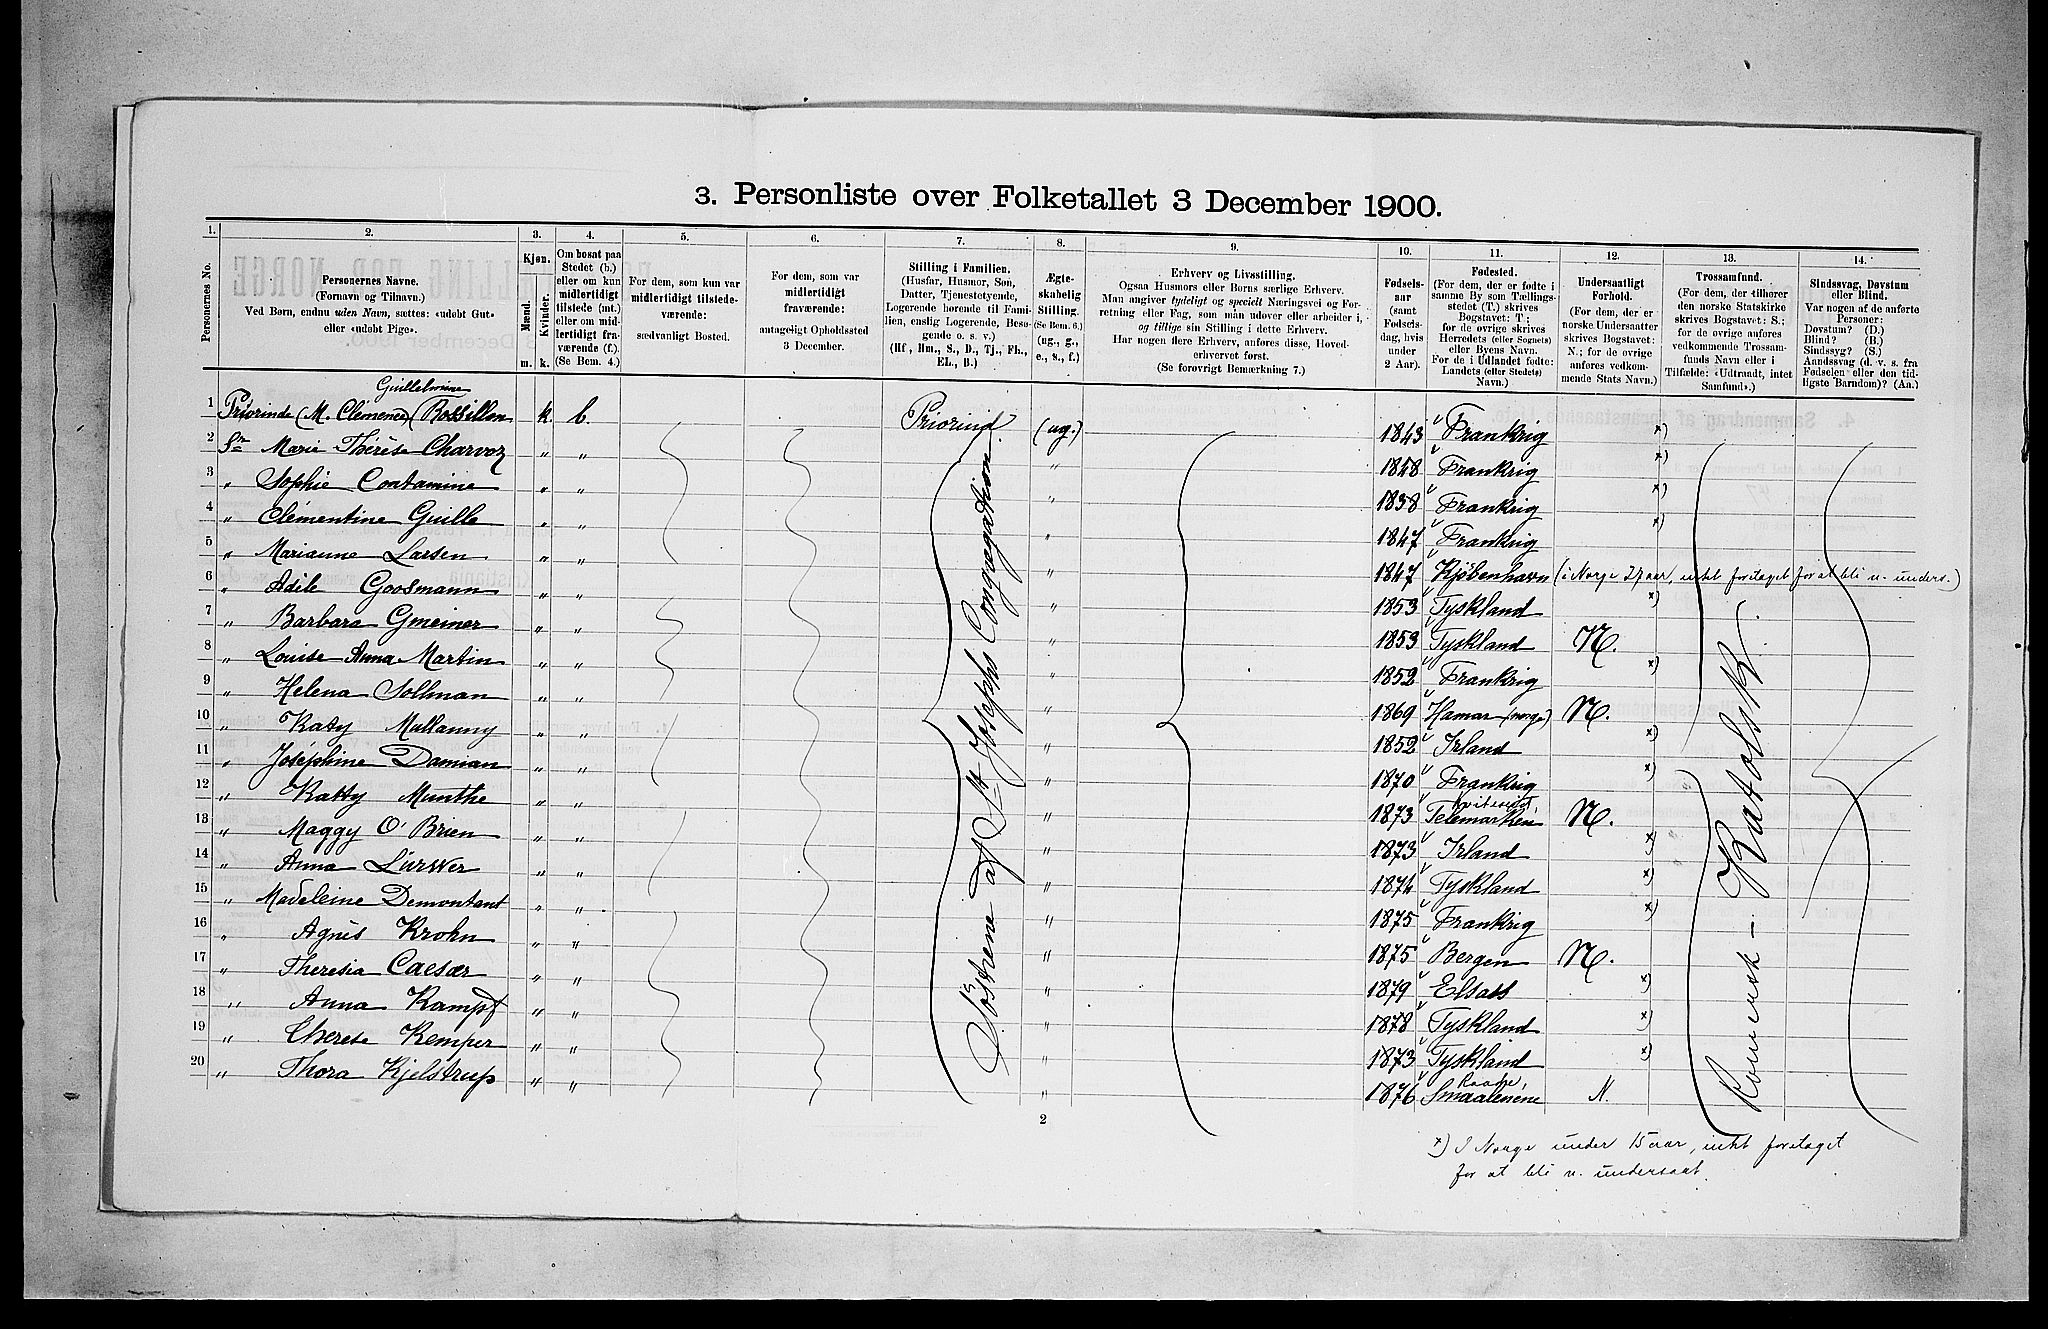 3. Personliste over Folketallet 3 December 1900.
1. 2. 3. 4. 5. 6. 7. 8. 9. 10. 11. 12. 13. 14.
Personernes No.
Personernes Navne.
(Fornavn og Tilnavn.)
Ved Børn, endnu uden Navn, sættes: «udøbt Gut»
eller «udøbt Pige».
Kjøn.
Mænd. Kvinder.
m. k.
Om bosat paa
Stedet (b.)
eller om kun
midlertidigt
tilstede (mt.)
eller om mid-
lertidigt fra-
værende (f.)
(Se Bem. 4.)
For dem, som kun var
midlertidigt tilstede-
værende:
sædvanligt Bosted.
For dem, som var
midlertidigt
fraværende:
antageligt Opholdssted
3 December.
Stilling i Familien.
(Husfar, Husmor, Søn,
Datter, Tjenestetyende,
Logerende hørende til Fami-
lien, enslig Logerende, Besø-
gende o. s. v.)
(Hf., Hm., S., D., Tj., Fl.,
EL., B.)
Ægte-
skabelig
Stilling.
(Se Bem. 6.)
(ug., g.,
e., s., f.)
Erhverv og Livsstilling.
Ogsaa Husmors eller Børns særlige Erhverv.
Man angiver tydeligt og specielt Næringsvei og For-
retning eller Fag, som man udøver eller arbeider i,
og tillige sin Stilling i dette Erhverv.
Har nogen flere Erhverv, anføres disse, Hoved-
erhvervet først.
(Se forøvrigt Bemærkning 7.)
Fødsels-
aar
(samt
Fødsels-
dag, hvis
under
2 Aar).
Fødested.
(For dem, der er fødte i
samme By som Tællings-
stedet (T.) skrives
Bogstavet: T;
for de øvrige skrives
Herredets (eller Sognets)
eller Byens Navn.
For de i Udlandet fødte:
Landets (eller Stedets)
Navn.)
Undersaatligt
Forhold.
(For dem, der er
norske Undersaatter
skrives Bogstavet:
N.; for de øvrige
anføres vedkom-
mende Stats Navn.)
Trossamfund.
(For dem, der tilhører
den norske Statskirke
skrives Bogstavet: S.;
for de øvrige anføres
vedkommende Trossam-
funds Navn eller i
Tilfælde: «Udtraadt, intet
Samfund».)
Sindssvag, Døvstum
eller Blind.
Var nogen af de anførte
Personer:
Døvstum? (D.)
Blind? (B.)
Sindssyg? (S.)
Aandssvag (d. v. s. fra
Fødselen eller den tid-
ligste Barndom)? (Aa.)
Guillelmine
1 Priorinde (M. Clémence) (Rossillon k. b. Priorind (ug.) 1843 Frankrig x)
2 Sr Marie Thérèse Charvoz " " " 1848 Frankrig x)
3 " Sophie Contamine " " " 1838 Frankrig x)
4 " Clementine Guille " " " 1847 Frankrig x)
5 " Marianne Larsen " " " 1847 Kjøbenhavn (i Norge 27 aar, intet foretaget for at bli n. unders.)
6 " Adile Goosmann " " " 1853 Tyskland x)
7 " Barbara Gmeiner " " " 1853 Tyskland N.
8 " Louise Anna Martin " " " 1852 Frankrig x)
9 " Helena Sollman " " " 1869 Hamar (Norge) N.
10 " Katy Mullanny " " " 1852 Irland x)
11 " Joséphine Damian " " " 1870 Frankrig x)
12 " Katty Munthe " " " 1873 Kviteseid, Telemarken N.
13 " Maggy O'Brien " " " 1873 Irland x)
14 " Anna " " " 1874 Tyskland x)
15 " Madeleine Demontant " " " 1875 Frankrig x)
16 " Agnes Krohn " " " 1875 Bergen N.
17 " Theresia Caesar " " " 1879 Elsass x)
18 " Anna Kampf " " " 1878 Tyskland x)
19 " Therese Kemper " " " 1873 Tyskland x)
20 " Thora Kjelstrup " " " 1876 Raade, Smaalenene N.
Søstrene af St Josephs Congregation.
Romersk - Katolsk
2
x) I Norge under 15 aar, intet foretaget
for at bli n. undersaat.